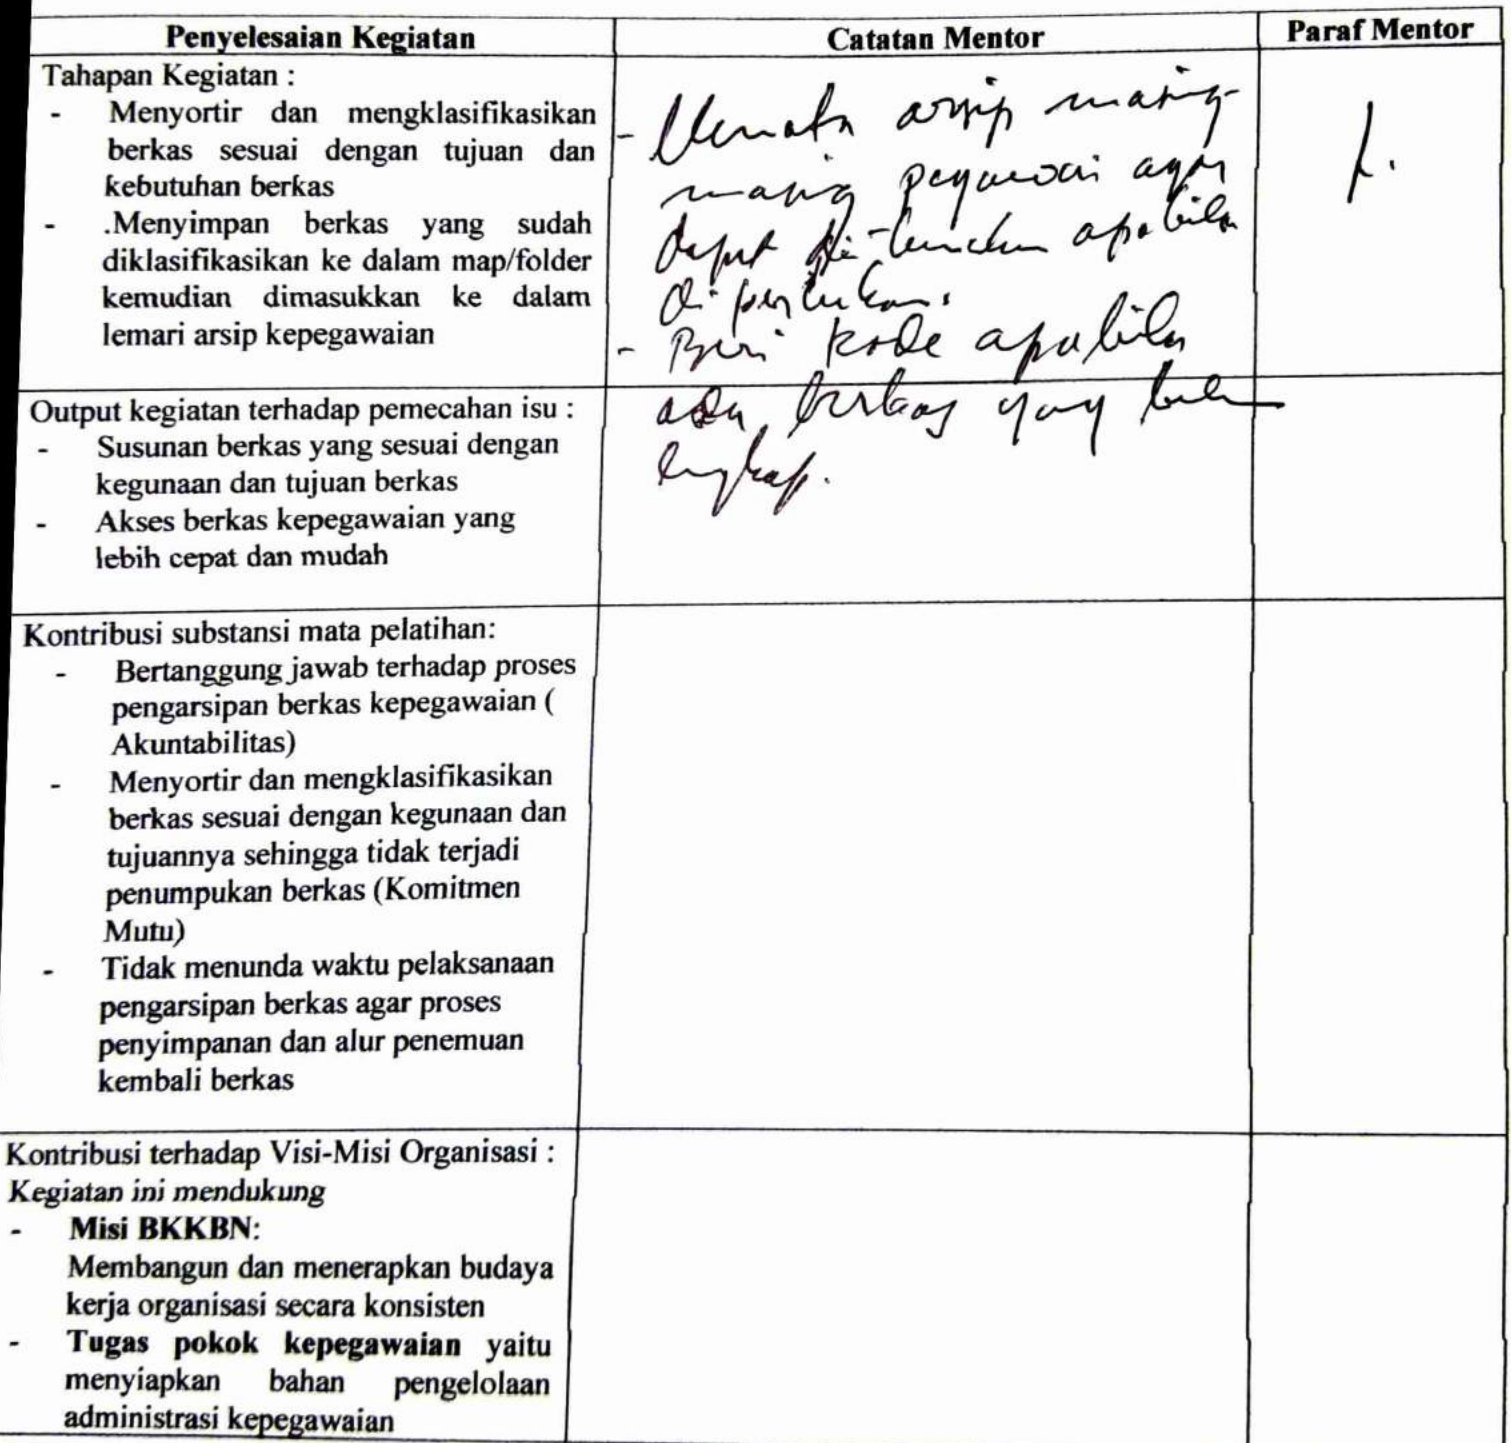 Penyelesaian Kegiatan
Catatan Mentor
Paraf Mentor
Tahapan Kegiatan :
- Menyortir dan mengklasifikasikan
berkas sesuai dengan tujuan dan
kebutuhan berkas
- .Menyimpan berkas yang sudah
diklasifikasikan ke dalam map/folder
kemudian dimasukkan ke dalam
lemari arsip kepegawaian
- Menata arsip masing-
masing pegawai agar
dapat apabila
diperlukan.
- Beri kode apabila
ada berkas yang belum
lengkap.
Output kegiatan terhadap pemecahan isu :
- Susunan berkas yang sesuai dengan
kegunaan dan tujuan berkas
- Akses berkas kepegawaian yang
lebih cepat dan mudah
Kontribusi substansi mata pelatihan:
- Bertanggung jawab terhadap proses
pengarsipan berkas kepegawaian (
Akuntabilitas)
- Menyortir dan mengklasifikasikan
berkas sesuai dengan kegunaan dan
tujuannya sehingga tidak terjadi
penumpukan berkas (Komitmen
Mutu)
- Tidak menunda waktu pelaksanaan
pengarsipan berkas agar proses
penyimpanan dan alur penemuan
kembali berkas
Kontribusi terhadap Visi-Misi Organisasi :
Kegiatan ini mendukung
- Misi BKKBN:
Membangun dan menerapkan budaya
kerja organisasi secara konsisten
- Tugas pokok kepegawaian yaitu
menyiapkan bahan pengelolaan
administrasi kepegawaian